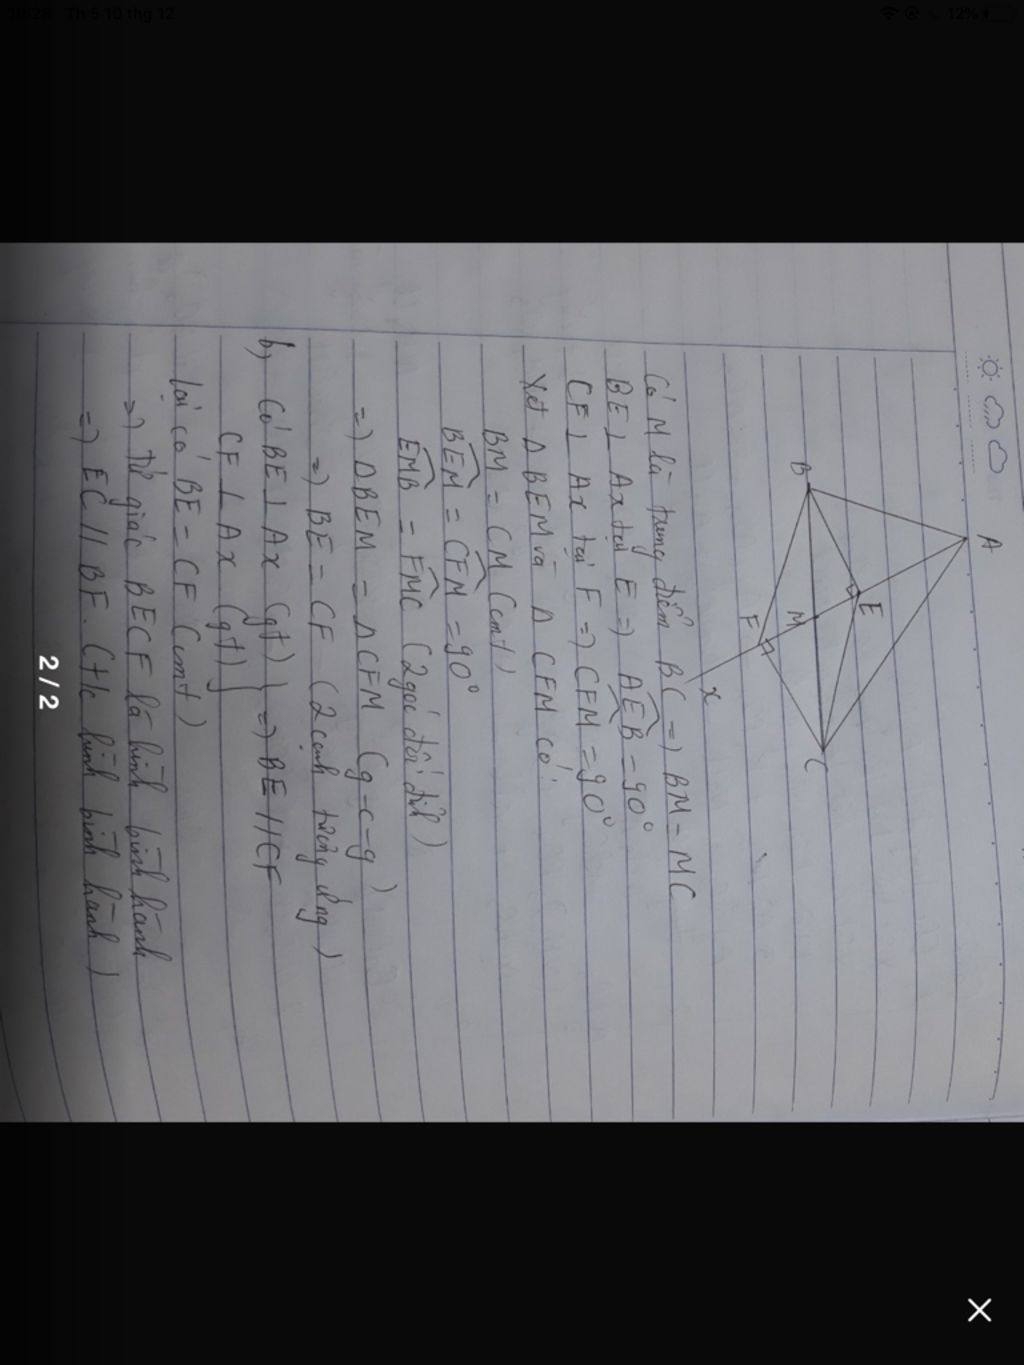 18:28 Th 5 10 thg 12
12%
A
B
E
M
F
C
x
Có M là trung điểm BC => BM = MC
BE ⊥ Ax tại E => AEB = 90°
CF ⊥ Ax tại F => CFM = 90°
Xét Δ BEM và Δ CFM có:
BM = CM (cmt)
BEM = CFM = 90°
EMB = FMC (2 góc đối đỉnh)
=> Δ BEM = Δ CFM (g-c-g)
=> BE = CF (2 cạnh tương ứng)
b, Có BE ⊥ Ax (gt) } => BE // CF
CF ⊥ Ax (gt)
lại có BE = CF (cmt)
=> Tứ giác BECF là hình bình hành
=> EC // BF. (t/c hình bình hành)
2/2